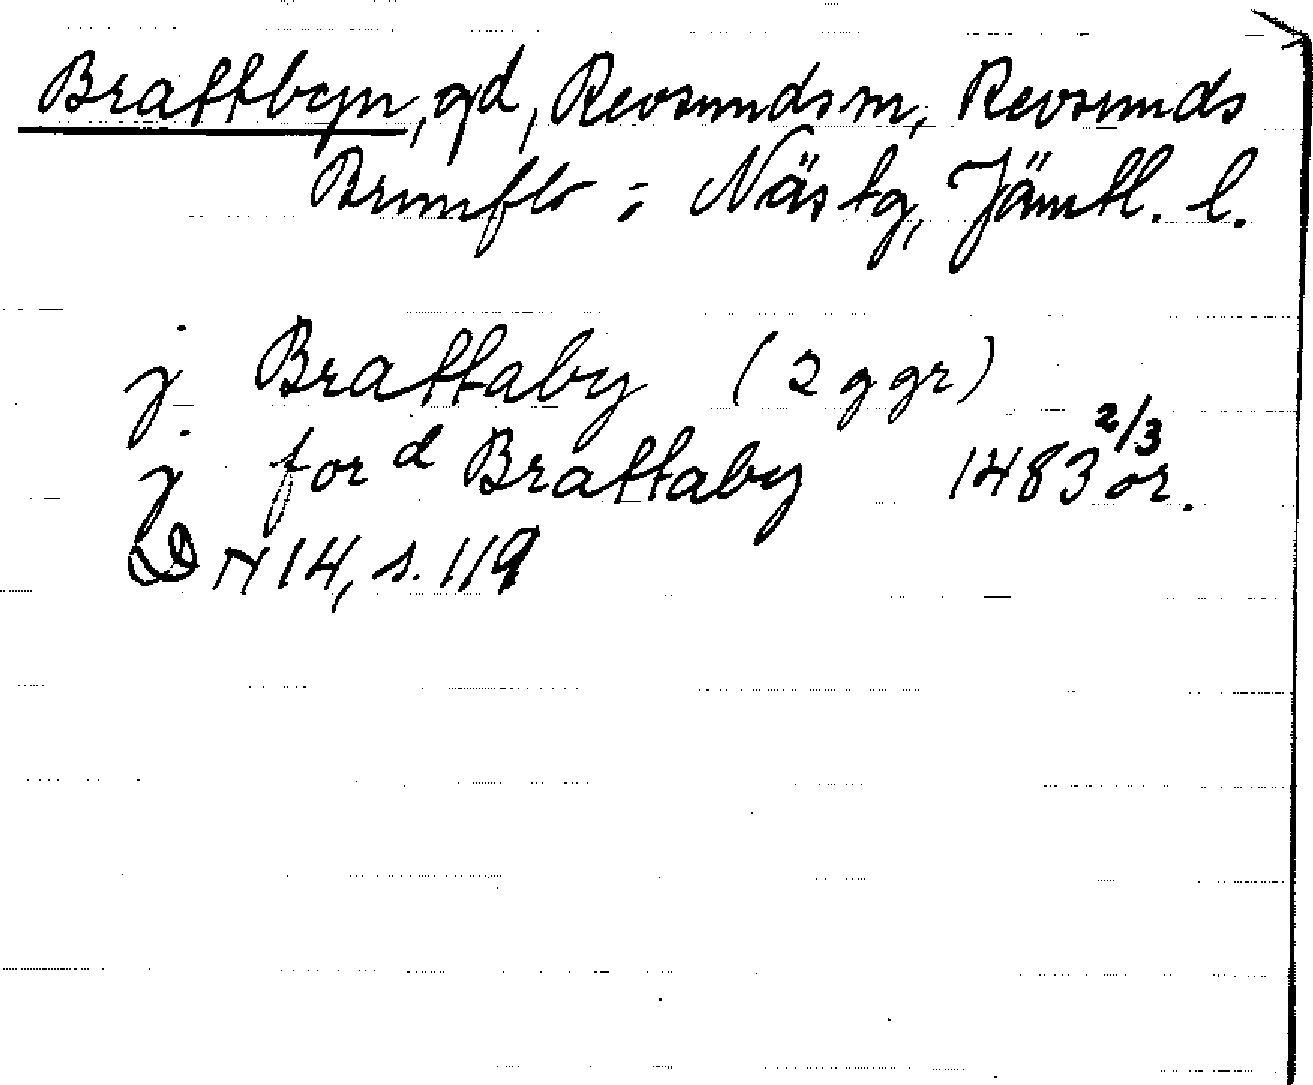 Brattbyn, gd, Revsunds sn, Revsunds
Brunflo o. Näs tg, Jämtl. l.
j Brattaby (2 ggr)
j for d Brattaby 1483 2/3 or.
DN 14, s. 119